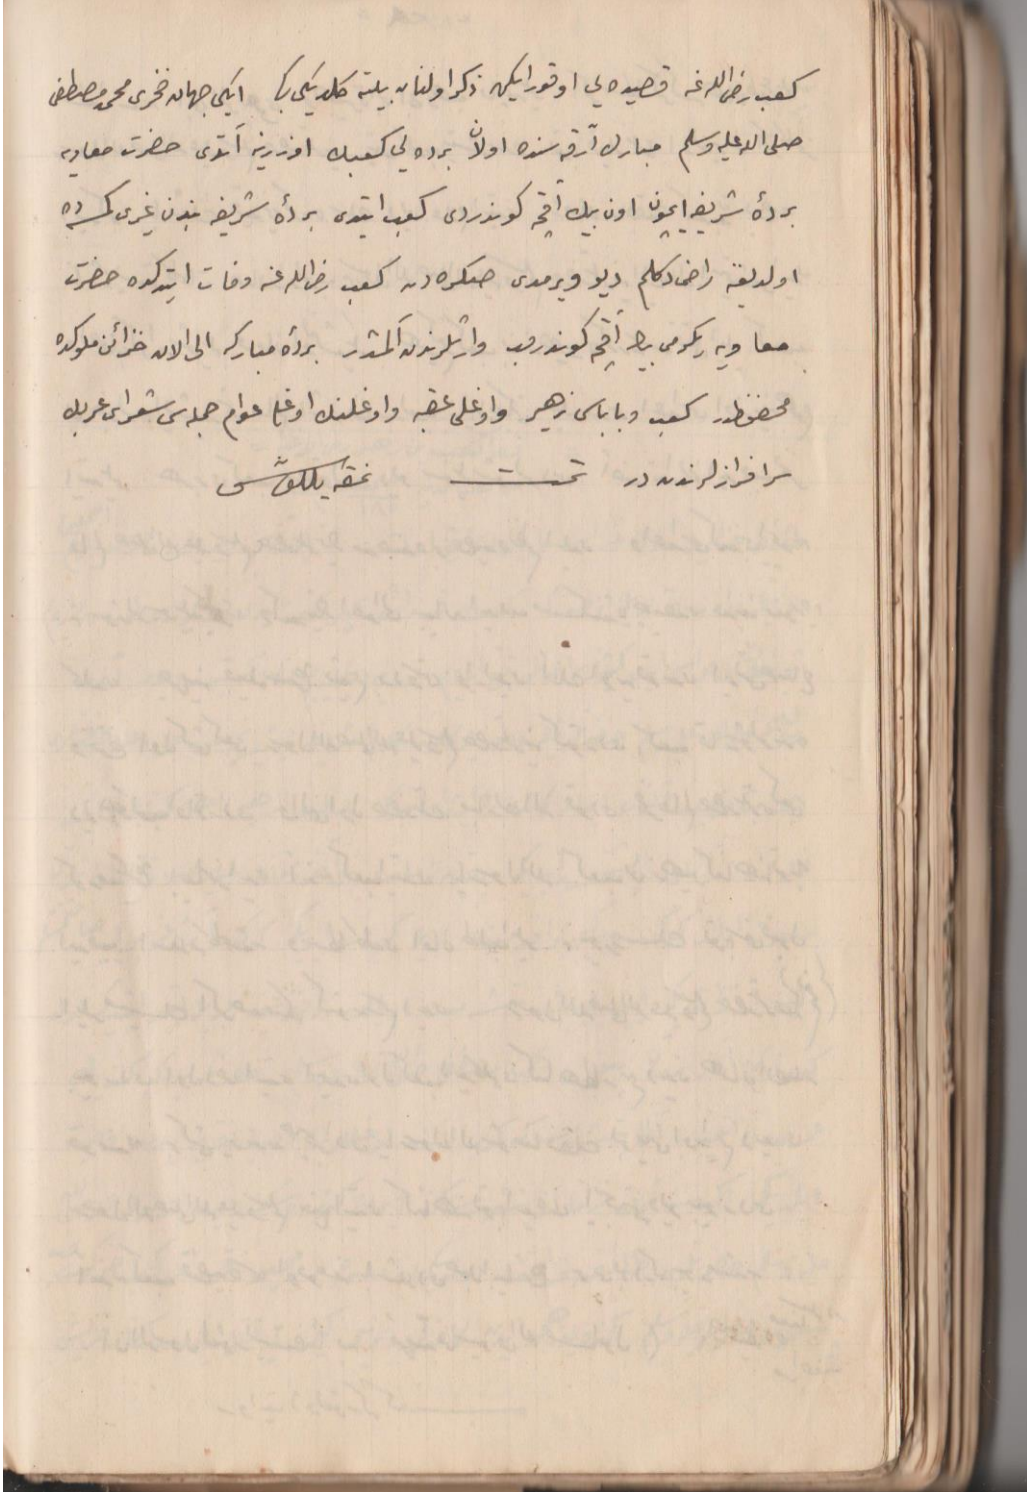 كعب رضى الله عنه قصيده يى اوقور ايكن ذكر اولنان بيته كلديكى كبى ايكى جهان فخرى محمد مصطفى
صلى الله عليه وسلم مبارك آرقه سنده اولان برده يى كعبك اوزرينه آتدى حضرت معاويه
بردهٔ شريفه ايچون اون بيك آقچه كوندردى كعب ايتدى بردهٔ شريفه بندن غيرى كمسه ده
اولديغنه راضى دكلم ديو ويرمدى صكره دن كعب رضى الله عنه وفات ايتدكده حضرت
معاويه يكرمى بيك آقچه كوندروب وارثلرندن آلمشدر بردهٔ مباركه الى الآن خزائن ملوكده
محفوظدر كعب وباباسى زهير واوغلى عقبه واوغلنك اوغلى عوام جمله سى شعراى عربك
سرافرازلرندن در تمت نمقه